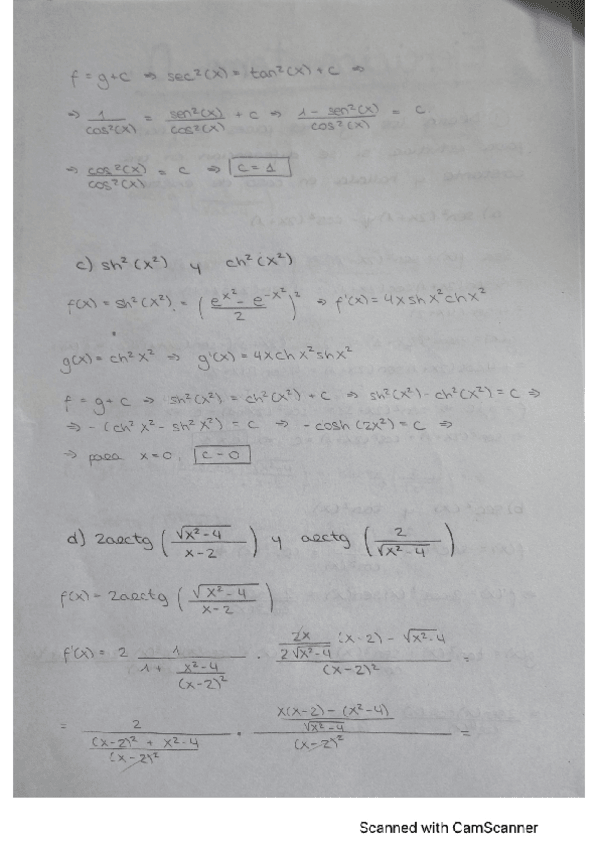 f = g+c ⇒ sec²(x) = tan²(x) + c ⇒
⇒ 1/cos²(x) = sen²(x)/cos²(x) + c ⇒ (1 - sen²(x))/cos²(x) = c
⇒ cos²(x)/cos²(x) = c ⇒ c = 1
c) sh²(x²) y ch²(x²)
f(x) = sh²(x²) = ((e^x² - e^-x²)/2)² ⇒ f'(x) = 4x sh x² ch x²
g(x) = ch² x² ⇒ g'(x) = 4x ch x² sh x²
f = g + c ⇒ sh²(x²) = ch²(x²) + c ⇒ sh²(x²) - ch²(x²) = c ⇒
⇒ - (ch² x² - sh² x²) = c ⇒ - cosh (2x²) = c ⇒
⇒ para x = 0, c - 0
d) 2arctg (√(x²-4)/(x-2)) y arctg (2/√(x²-4))
f(x) = 2arctg (√(x²-4)/(x-2))
f'(x) = 2 1/(1 + (x²-4)/(x-2)²) · ((2x/(2√(x²-4))) (x-2) - √(x²-4))/(x-2)² =
= 2/(((x-2)² + x²-4)/(x-2)²) · ((x(x-2) - (x²-4))/√(x²-4))/(x-2)² =
Scanned with CamScanner